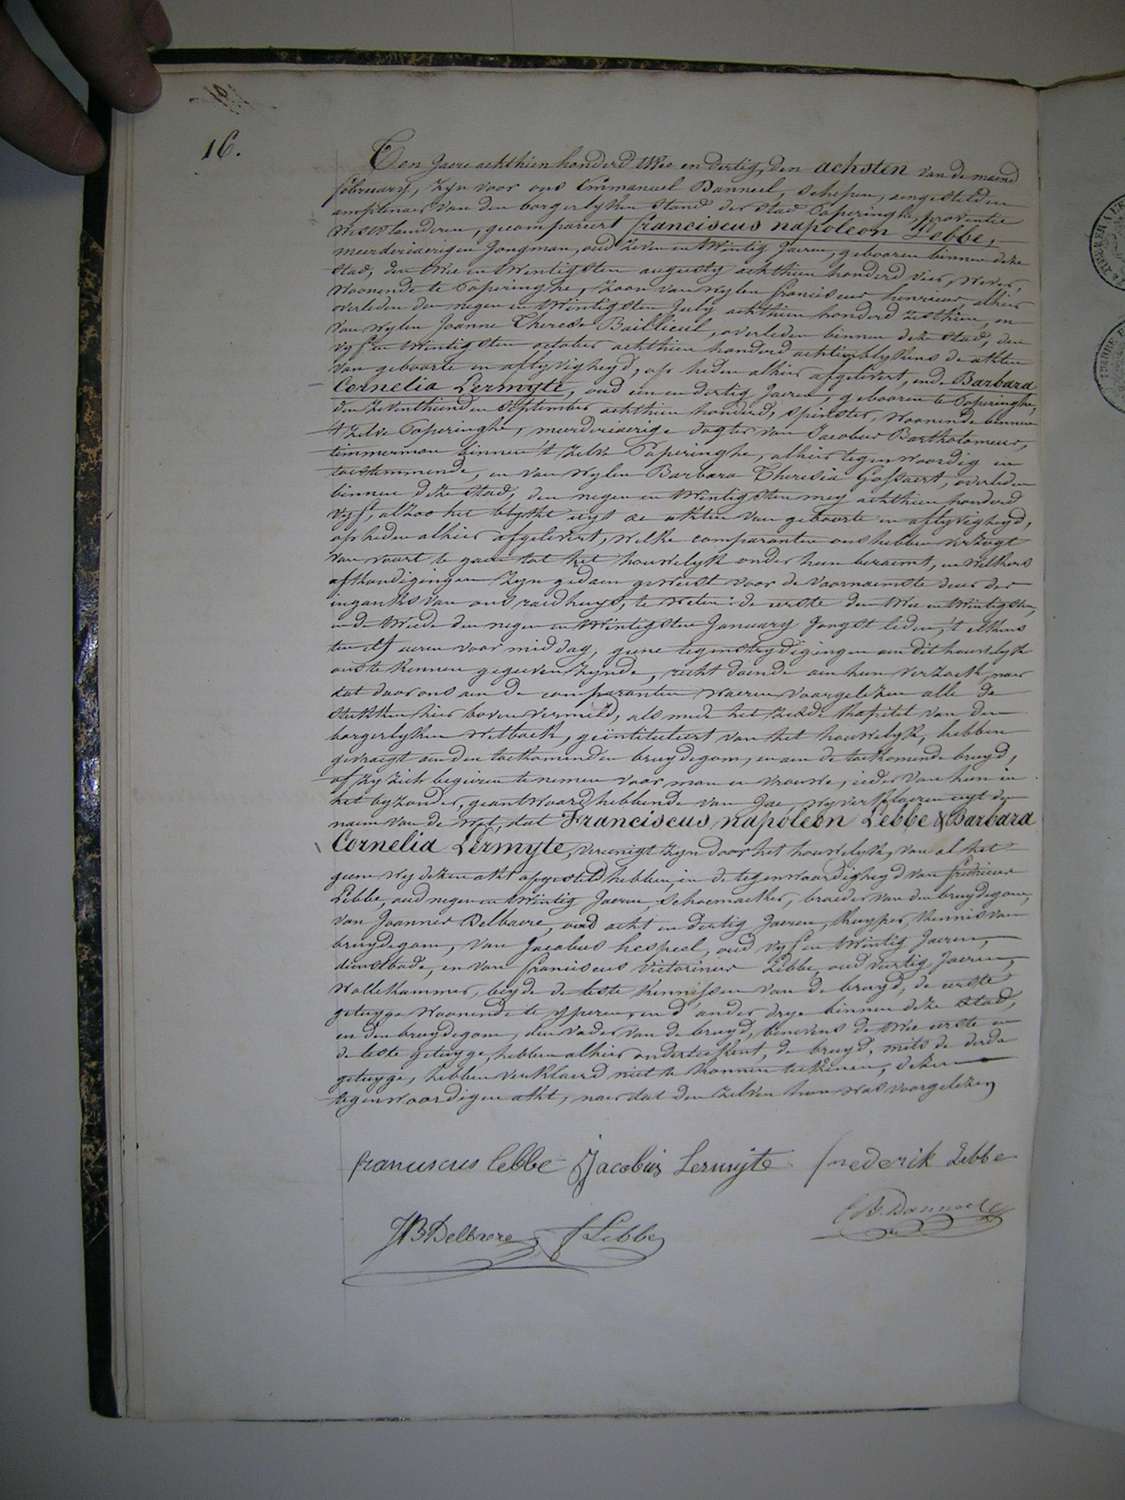 16.
Een Jaere achthien honderd twee en dertig, den achsten van de maend
february, zyn voor ons Emmanuel Banneel, schepen, aengestelden
amptenaer van den borgerlyken stand der stad Poperinghe, proventie
Westvlanderen, gecompareert franciscus napoleon Lebbe,
meerderjaerigen Jongman, oud zeven en twintig Jaeren, gebooren binnen deze
stad, den twee en twintigsten augusty achthien honderd vier, wever,
woonende te Poperinghe, zoon van wylen franciscus henricus alhier
overleden den negen en twintigsten July achthien honderd zesthien, en
van wylen Joanne Therese Baillieul, overleden binnen deze stad, den
vyf en twintigsten october achthien honderd achtien blykens de akten
van geboorte en aflyvigheyd, op heden alhier afgelevert, ende Barbara
Cornelia Lermyte, oud een en dertig Jaeren, gebooren te Poperinghe,
den zeventhienden september achthien honderd, spinster, woonende binnen
't zelve Poperinghe, meerderjaerige dogter van Jacobus Bartholomeus,
timmerman binnen 't zelve Poperinghe, alhier tegenwoordig en
toestemmende, en van wylen Barbara Theresia Gossaert, overleden
binnen deze stad, den negen en twintigsten mey achthien honderd
vyf, alzoo het blykt uyt de akten van geboorte en aflyvigheyd,
op heden alhier afgelevert, welke comparanten ons hebben verzogt
van voort te gaen tot het houwelyk onder hun beraemt, en welkers
afkondigingen zyn gedaen geweest voor de voornaemste deur der
ingank van ons raedhuys, te weten: de eerste den twee en twintigsten,
en de twede den negen en twintigsten January Jongst leden, 't elkens
ten elf ueren voor middag, geene tegenstrydigingen aen dit houwelyk
ons te kennen gegeven zynde, recht doende aen hun verzoek, naer
dat door ons aen de comparanten waeren voorgelezen alle de
stukken hier boven vermeld, als mede het zesde kapitel van den
borgerlyken wetboek, geïntituleert van het houwelyk, hebben
gevraegt aen den toekomenden bruydegom, en aen de toekomende bruyd,
of zy zich begeiren te nemen voor man en vrouwe, ieder van hun in
het byzonder, geantwoord hebbende van Jae, wy verklaeren uyt den
naem van de wet, dat Franciscus napoleon Lebbe & Barbara
Cornelia Lermyte, vereenigt zyn door het houwelyk, van al het
geen wy dezen akt opgesteld hebben, in de tegenwoordigheyd van fredricus
Lebbe, oud negen en twintig Jaeren, schoemaeker, broeder van den bruydegom,
van Joannes Delbaere, oud acht en dertig Jaeren, kuyper, kennis van
bruydegom, van Jacobus hespeel, oud vyf en twintig Jaeren,
dienstbode, en van franciscus victorinus Lebbe, oud veertig Jaeren,
wollekammer, beyde de leste kennissen van de bruyd, de eerste
getuyge woonende te ypren, end' ander drye binnen deze stad,
en den bruydegom, den vader van de bruyd, benevens de twee eerste en
de leste getuyge, hebben alhier onderteekent, de bruyd, mits de derde
getuyge, hebben verklaerd niet te konnen teekenen, dezen
tegenwoordigen akt, naer dat den zelven hun was voorgelezen
franciscus lebbe Jacobus Lermyte frederik Lebbe
JB Delbaere f Lebbe E Banneel